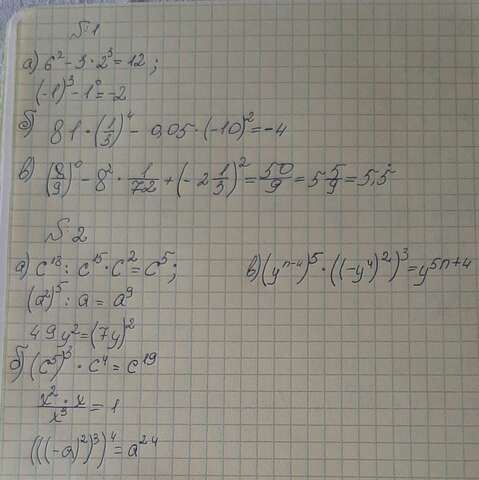 №1
а) 6² - 3 · 2³ = 12;
(-1)³ - 1⁰ = -2
б) 81 · (1/3)⁴ - 0,05 · (-10)² = -4
в) (8/9)⁰ - 8² · 1/72 + (-2 1/3)² = 50/9 = 5 5/9 = 5,5
№2
а) c¹⁸ : c¹⁵ · c² = c⁵;
(a²)⁵ : a = a⁹
49y² = (7y)²
б) (c⁵)³ · c⁴ = c¹⁹
x² · x / x³ = 1
(((-a)²)³)⁴ = a²⁴
в) (yⁿ⁻⁴)⁵ · ((-y⁴)²)³ = y⁵ⁿ⁺⁴